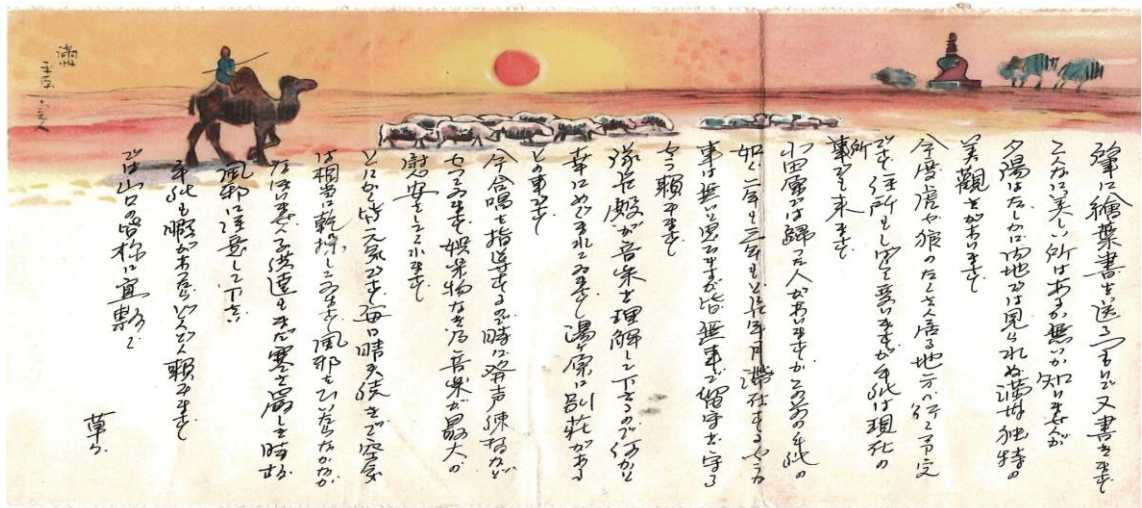 隊に繪葉書を送つたので又書きます
こんなに美しい所はあるか無いか知りませんが
夕陽はたしかに内地では見られぬ満洲独特の
美観であります
今度虎や狼のたくさん居る地方か行く予定
です 住所も少し変りますが手紙は現在の
所で来ます
小田原では歸つた人がありますがこの前の手紙の
如く二年も三年も長年月滞在する
事は無いと思ひますが皆無事で留守を守る
頼みます
隊長殿が音楽を理解して下さるので何かと
幸にめぐまれてゐます 湯ヶ原に別荘がある
との事です
今合唱を指導する時に発声練習など
やつてゐます 娯楽物なき為音楽が最大の
慰安をして
とにかく皆元気です 毎日晴天続きで空気
は相当に乾操してゐます 風邪をひいたらなかなか
なほりません 洪達もまだ寒さ厳しき時故
風邪に注意して下さい
手紙も暇があつたらどんどん頼みます
では山口の皆様に宜敷く
草々
満洲